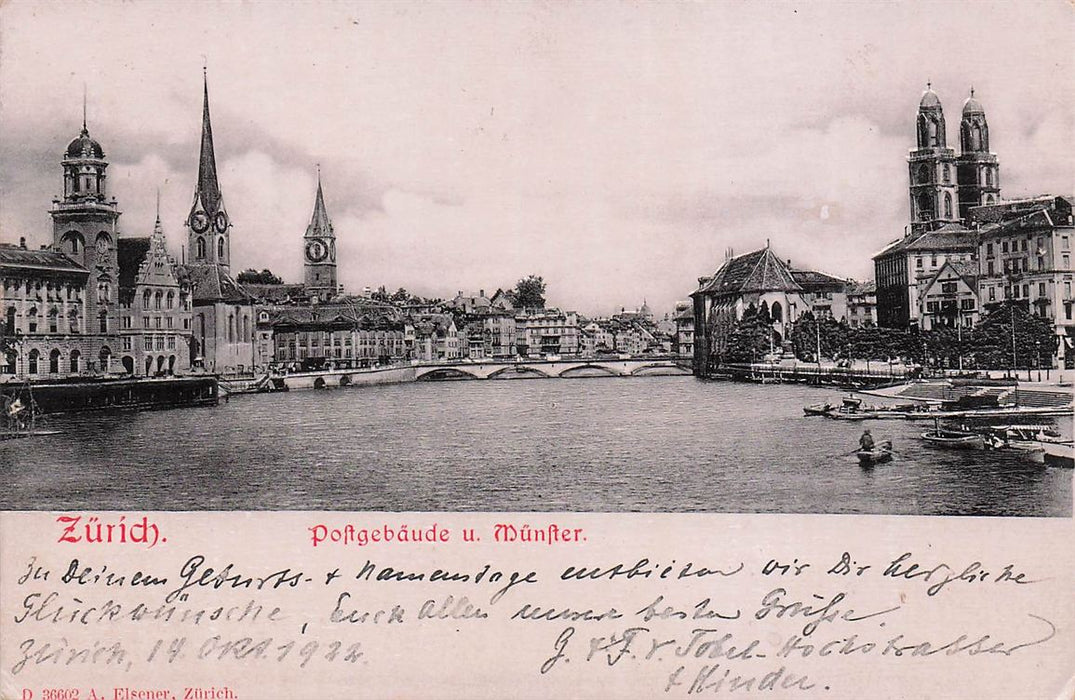 Zürich. Postgebäude u. Münster.
Zu Deinem Geburts- + Namenstage entbieten wir Dir herzliche
Glückwünsche, Euch Allen unsere besten Grüße.
Zürich, 14. Okt. 1922.
G. + F. v. Tobel-Hochstrasser
+ Kinder.
D 36602 A. Elsener, Zürich.